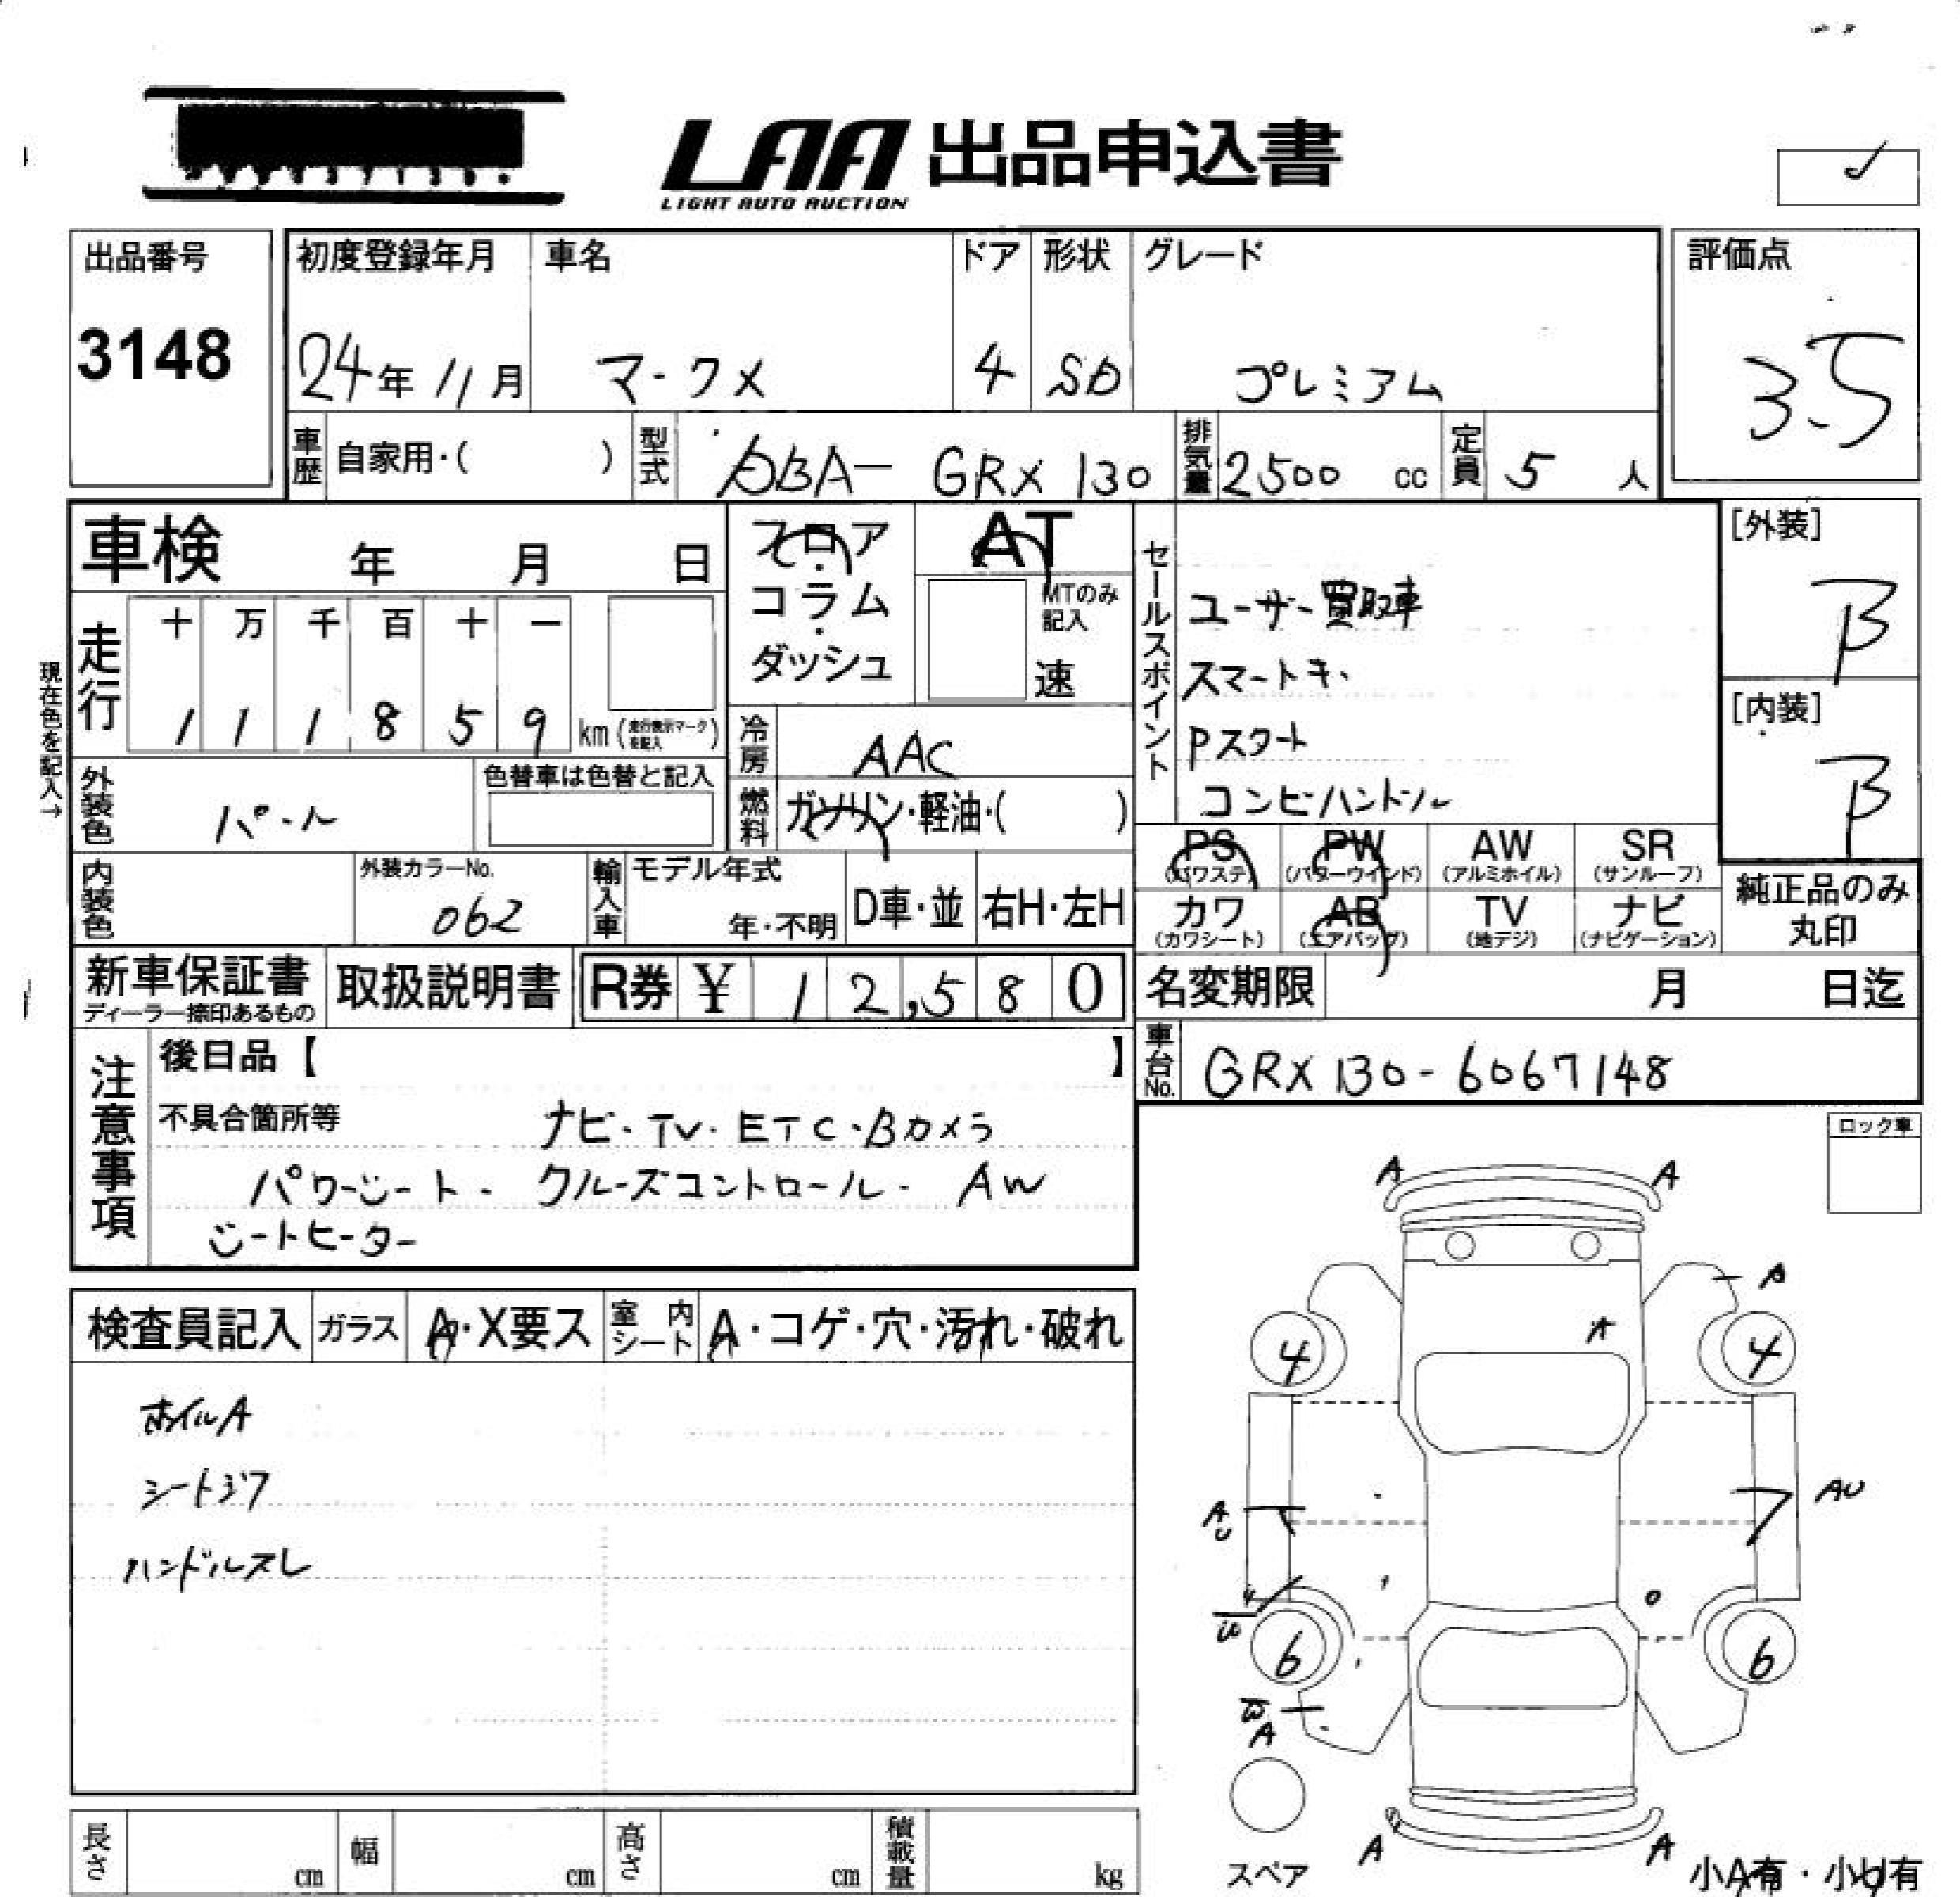 LAA 出品申込書
LIGHT AUTO AUCTION
出品番号
3148
初度登録年月
24年 11月
車名
マークX
ドア
4
形状
SD
グレード
プレミアム
評価点
3.5
車歴
自家用・( )
型式
DBA- GRX 130
排気量
2500 cc
定員
5 人
車検 年 月 日
フロア・コラム・ダッシュ
AT
MTのみ記入
速
セールスポイント
ユーザー買取車
スマートキー
Pスタート
コンビハンドル
[外装]
B
[内装]
B
現在色を記入→
走行
十 万 千 百 十 一
1 1 1 8 5 9 km (走行表示マークを記入)
冷房
AAC
燃料
ガソリン・軽油・( )
外装色
パール
色替車は色替と記入
内装色
外装カラーNo.
062
輸入車
モデル年式
年・不明
D車・並
右H・左H
PS (パワステ)
PW (パワーウインド)
AW (アルミホイル)
SR (サンルーフ)
カワ (カワシート)
AB (エアバッグ)
TV (地デジ)
ナビ (ナビゲーション)
純正品のみ
丸印
新車保証書
ディーラー捺印あるもの
取扱説明書
R券 ¥ 12,580
名変期限 月 日迄
車台No.
GRX 130-6067148
注意事項
後日品【 】
不具合箇所等
ナビ・TV・ETC・Bカメラ
パワーシート・クルーズコントロール・AW
シートヒーター
ロック車
検査員記入
ガラス
A・X要ス
室内シート
A・コゲ・穴・汚れ・破れ
ホイルA
シートジワ
ハンドルスレ
A A
A
A
4 4
AU AU
U
W
6 6
W
A
A A
スペア
小A有・小U有
長さ cm
幅 cm
高さ cm
積載量 kg